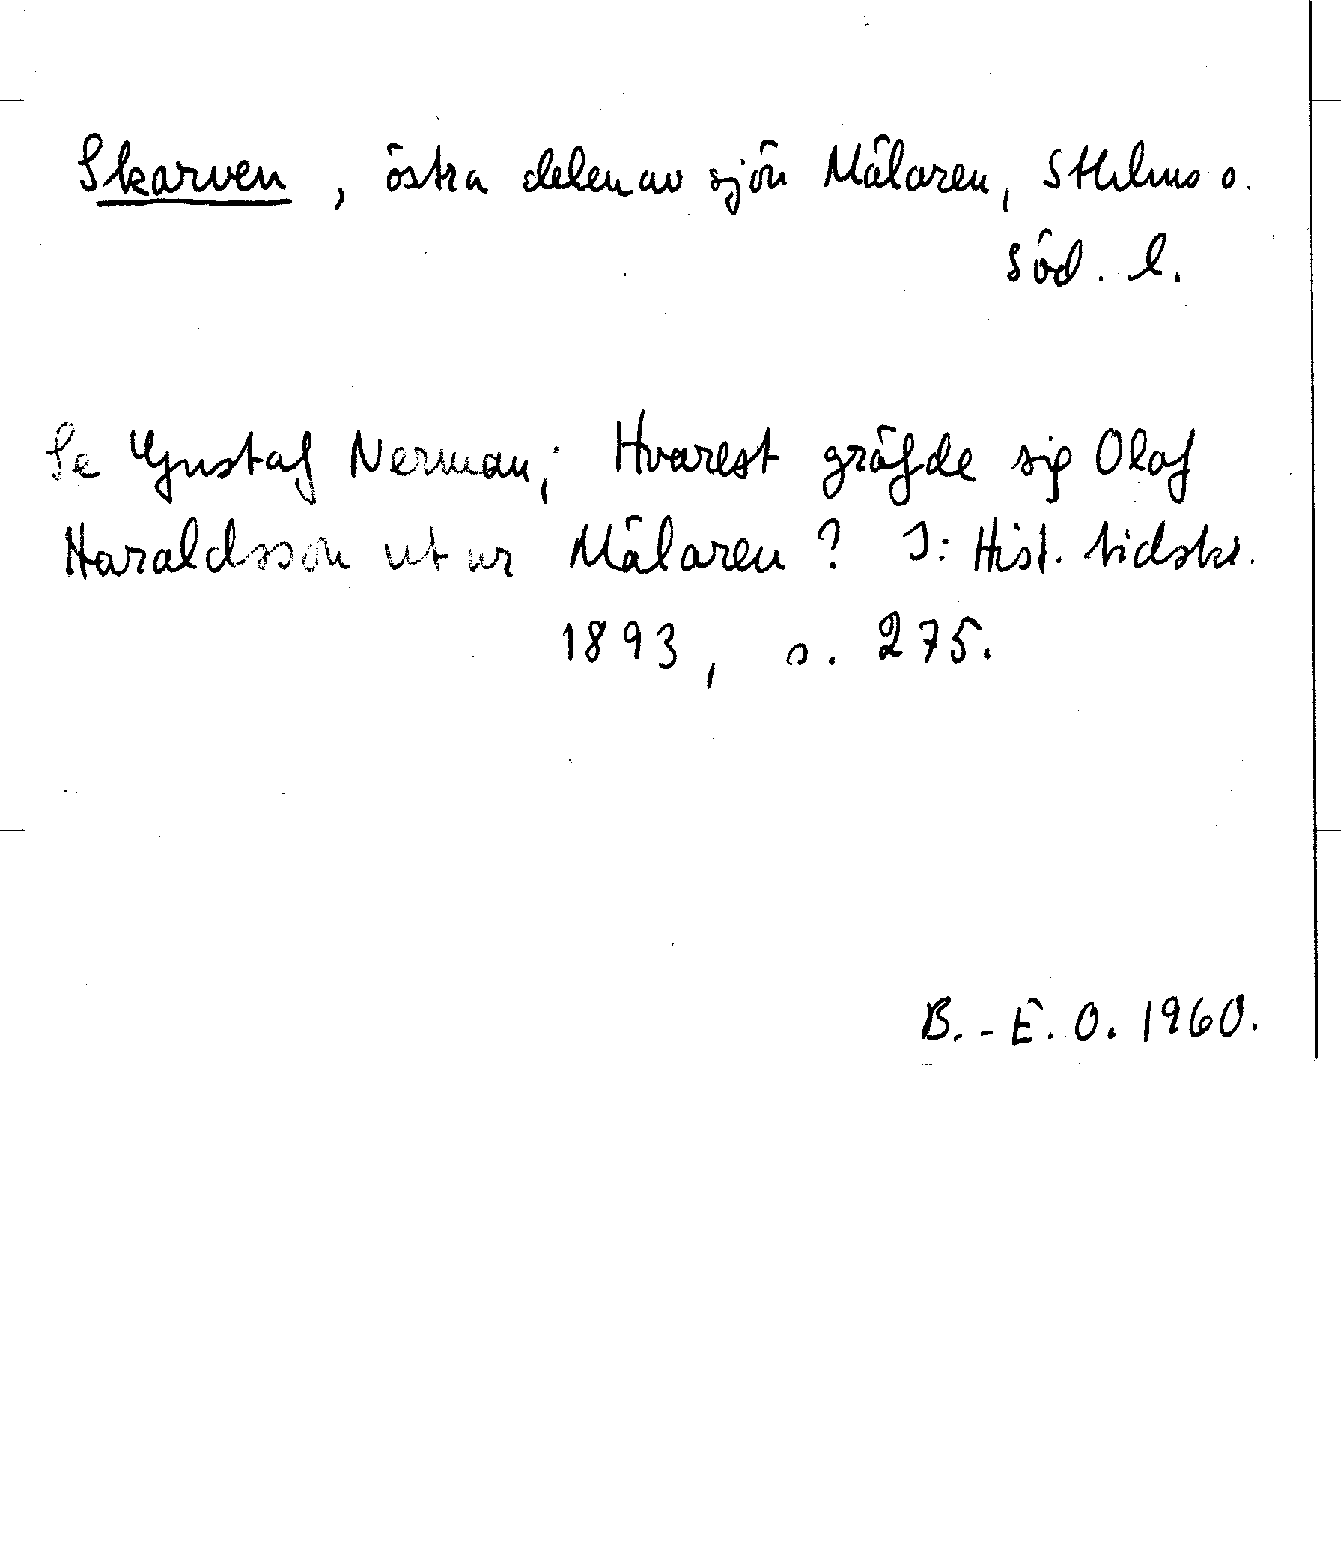 Skarven, östra delen av sjön Mälaren, Sthlms o.
Söd. l.
Se Gustaf Nerman; Hvarest gräfde sig Olaf
Haraldsson ut ur Mälaren? I: Hist. tidskr.
1893, s. 275.
B.-E. O. 1960.